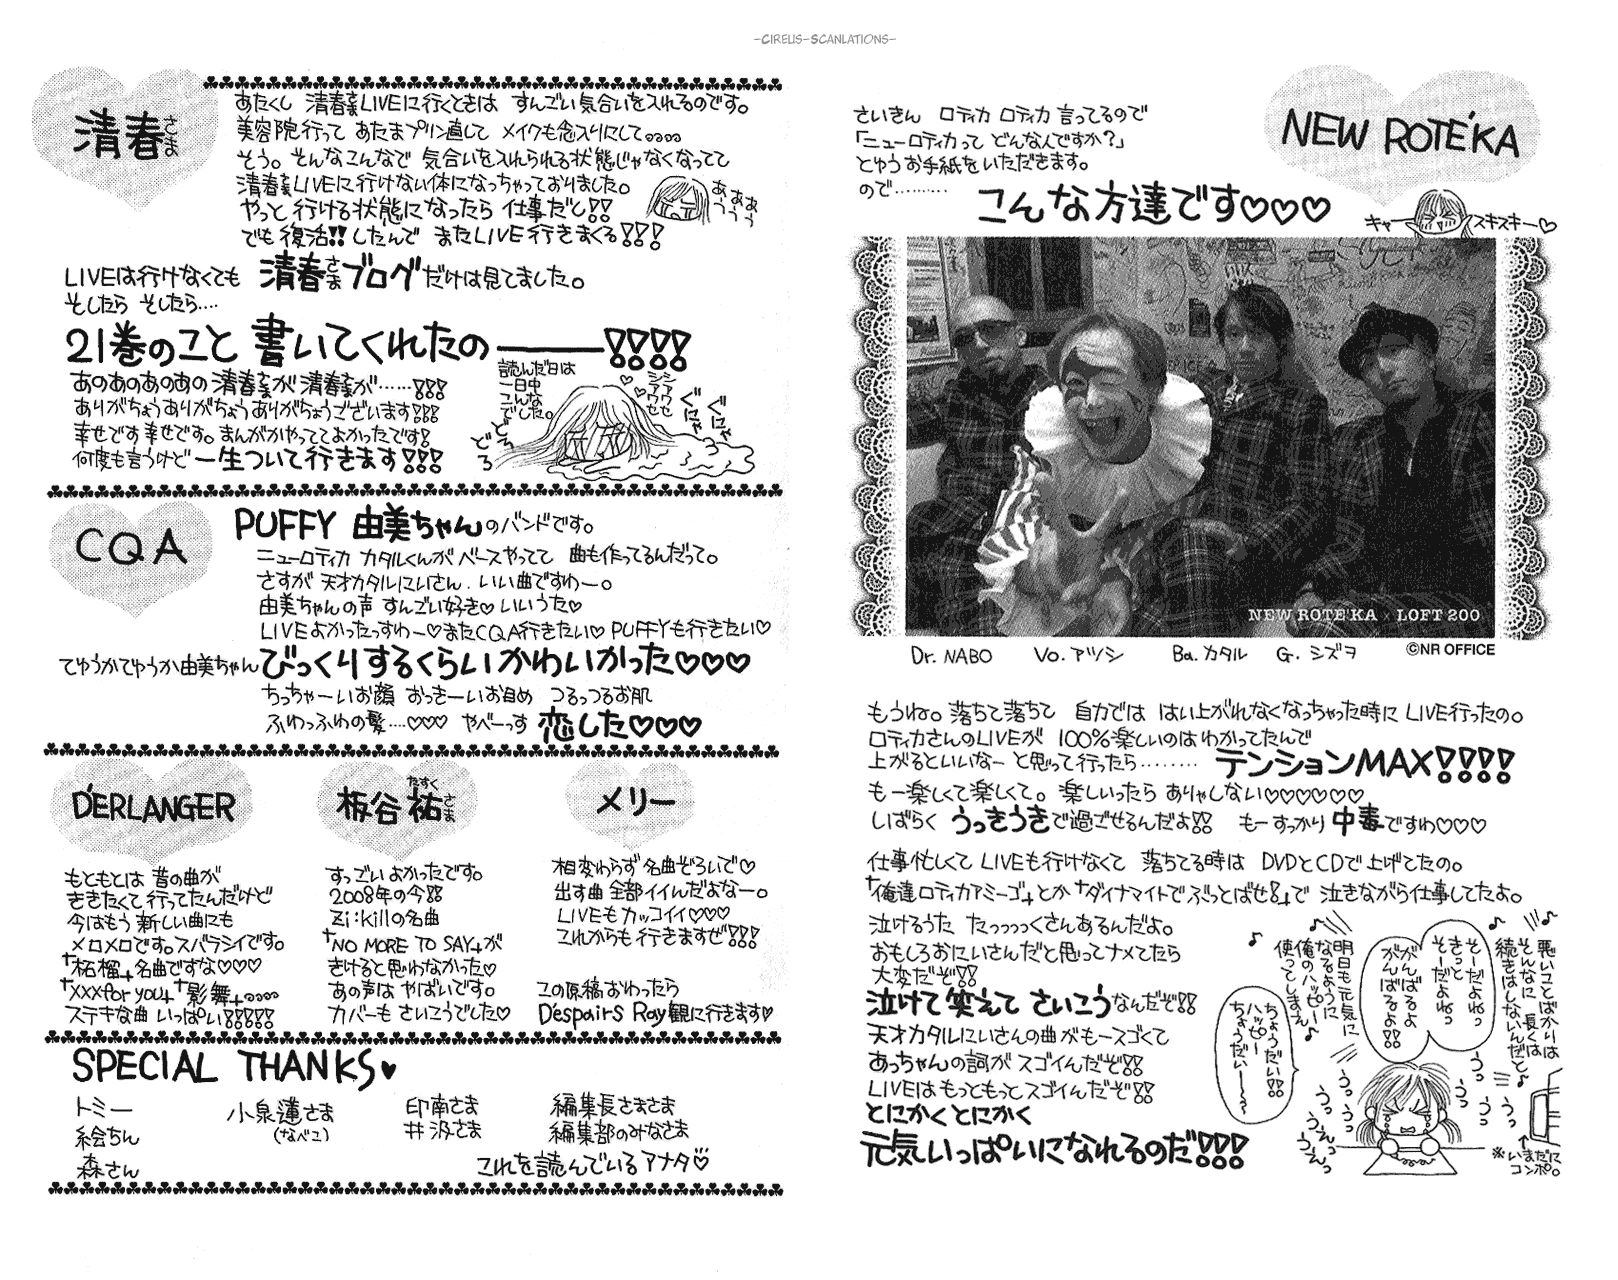 -CIRELIS-SCANLATIONS-
NEW ROTE'KA
さいきん ロティカ ロティカ 言ってるので
「ニューロティカって どんなんですか？」
とゆうお手紙をいただきます。
ので………
こんな方達です♡♡♡
キャー
スキスキー♡
NEW ROTE'KA × LOFT 200
Dr. NABO Vo. アツシ Ba. カタル G. シズヲ
©NR OFFICE
もうね。落ちて落ちて 自力では はい上がれなくなっちゃった時に LIVE行ったの。
ロティカさんのLIVEが 100%楽しいのはわかってたんで
上がるといいなー と思って行ったら……… テンションMAX!!!!
もー楽しくて楽しくて。楽しいったら ありゃしない♡♡♡♡♡♡
しばらく うっきうきで過ごせるんだよ!! もーすっかり 中毒ですわ♡♡♡
仕事忙しくて LIVEも行けなくて 落ちてる時は DVDとCDで上げてたの。
†俺達ロティカアミーゴ†とか†ダイナマイトでぶっとばせ!†で 泣きながら仕事してたよ。
泣けるうた たっっっっくさんあるんだよ。
おもしろおにいさんだと思ってナメてたら
大変だぞ!!
泣けて 笑えて さいこうなんだぞ!!
天才カタルにいさんの曲がもースゴくて
あっちゃんの詞が スゴイんだぞ!!
LIVEは もっともっとスゴイんだぞ!!
とにかくとにかく
元気いっぱいになれるのだ!!!
悪いことばかりは
そんなに 長くは
続きはしないんだと♪
そーだよねっ
きっと
そーだよねっ
がんばるよ
がんばるよ!!
明日も元気に
なるように
俺のハッピー♪
使ってしまえ
ちょうだい!!
ハッピー
ちょうだいー〜〜
うっ
うっ
うっ
うっ
うっ
うえっ
うえっ
※いまだに
コンポ。
清春さま
あたくし 清春さまLIVEに行くときは すんごい気合いを入れるのです。
美容院行って あたまプリン直して メイクも念入りにして。。。。
そう。そんなこんなで 気合いを入れられる状態じゃなくなってて
清春さまLIVEに行けない体になっちゃっておりました。
やっと 行ける状態になったら 仕事だし!!
でも 復活!! したんで またLIVE行きまくる!!!
ああぁ
ううぅ
LIVEは行けなくても 清春さまブログだけは見てました。
そしたら そしたら….
21巻のこと 書いてくれたの―――!!!!
あのあのあのあの 清春さまが 清春さまが……!!!
ありがちょうありがちょう ありがちょうございます!!!
幸せです 幸せです。まんがかやっててよかったです!
何度も言うけど 一生ついて行きます!!!
読んだ日は
一日中
こんな
でした。
シアワセ
シアワセ
ぐにゃ
ぐにゃ
どろ
どろ
CQA
PUFFY 由美ちゃんのバンドです。
ニューロティカ カタルくんが ベースやってて 曲も作ってるんだって。
さすが 天才カタルにいさん. いい曲ですわー。
由美ちゃんの声 すんごい好き♡ いいうた♡
LIVEよかったっすわー♡またCQA行きたい♡ PUFFYも行きたい♡
てゆうかてゆうか由美ちゃん びっくりするくらい かわいかった♡♡♡
ちっちゃーいお顔 おっきーいお目め つるっつるお肌
ふわっふわの髪….♡♡♡ やべーっす 恋した♡♡♡
D'ERLANGER
もともとは 昔の曲が
ききたくて行ってたんだけど
今はもう 新しい曲にも
メロメロです。スバラシイです。
†柘榴† 名曲ですな♡♡♡
†XXX for you† †影舞†。。。。
ステキな曲 いっぱい!!!!!
板谷祐さま
たすく
すっごい よかったです。
2008年の今!!
Zi:killの名曲
†NO MORE TO SAY†が
きけると思わなかった♡
あの声は やばいです。
カバーも さいこうでした♡
メリー
相変わらず 名曲ぞろいで♡
出す曲 全部イイんだよなー。
LIVEもカッコイイ♡♡♡
これからも 行きますぜ!!!
この原稿おわったら
D'espairs Ray 観に行きます♡
SPECIAL THANKS♥
トミー
絵ちん
森さん
小泉蓮さま
(なべこ)
印南さま
井汲さま
編集長さまさま
編集部のみなさま
これを読んでいるアナタ♡